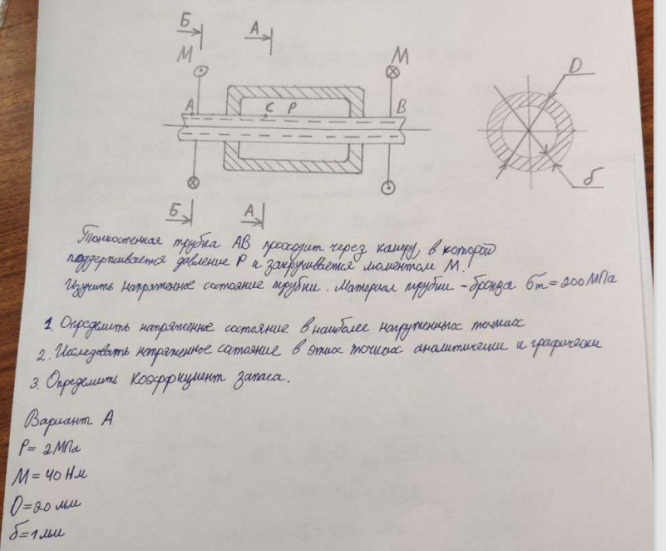 Б А
М М
А С Р В D
δ
Б А
Тонкостенная трубка АВ проходит через камеру, в которой
поддерживается давление Р и закручивается моментом М.
Изучить напряженное состояние трубки. Материал трубки - бронза бт=200МПа
1. Определить напряженное состояние в наиболее нагруженных точках
2. Исследовать напряженное состояние в этих точках аналитически и графически
3. Определить коэффициент запаса.
Вариант А
Р= 2МПа
М=40Нм
D=20мм
δ=1мм